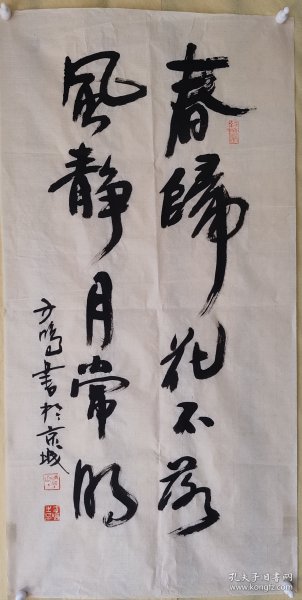 春歸花不落
風靜月常明
方鳴書於京城
孔夫子旧书网
www.kongfz.com